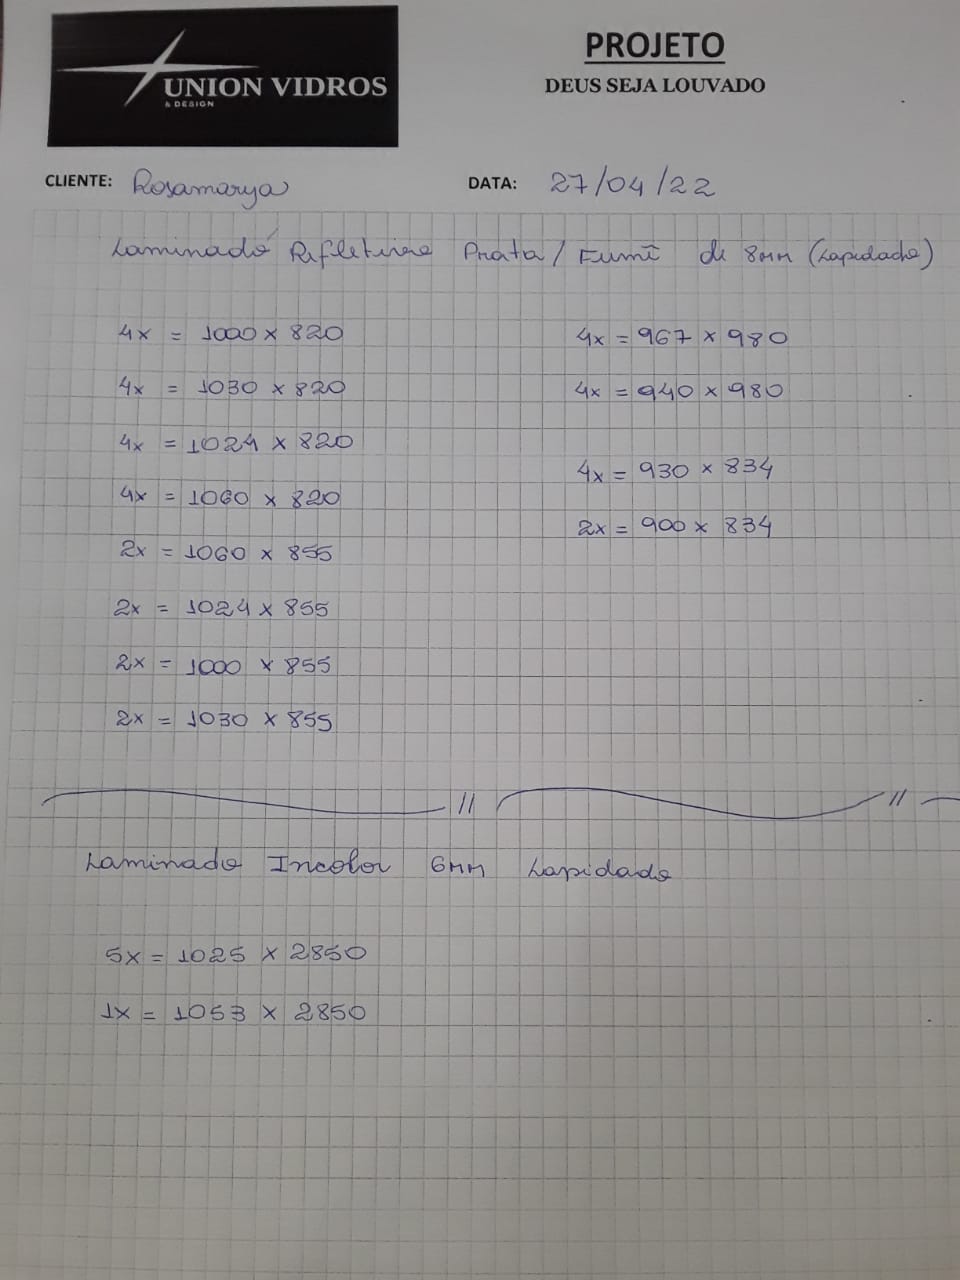 UNION VIDROS
& DESIGN
PROJETO
DEUS SEJA LOUVADO
CLIENTE: Rosamarya
DATA: 27/04/22
Laminado Refletivo Prata / Fumê de 8MM (Lapidado)
4x = 1000 x 820
4x = 1030 x 820
4x = 1024 x 820
4x = 1060 x 820
2x = 1060 x 855
2x = 1024 x 855
2x = 1000 x 855
2x = 1030 x 855
4x = 967 x 980
4x = 940 x 980
4x = 930 x 834
2x = 900 x 834
Laminado Incolor 6MM Lapidado
5x = 1025 x 2850
1x = 1053 x 2850